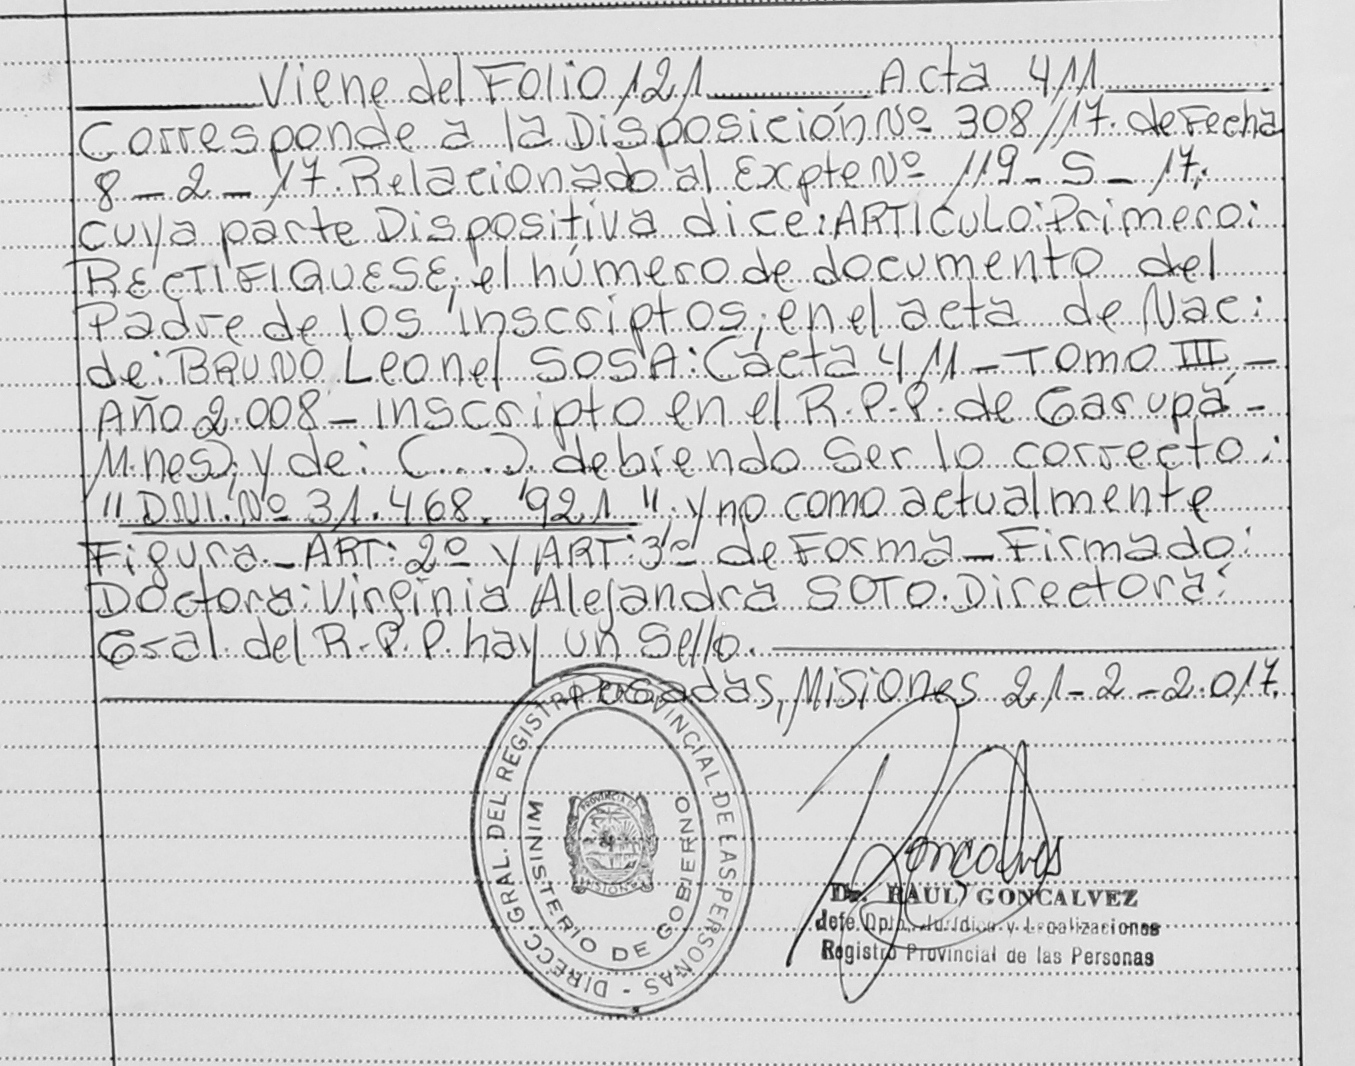 Viene del Folio 121 Acta 411
Corresponde a la Disposición Nº 308/17. de Fecha
8-2-17. Relacionado al Expte Nº 119-S-17.
cuya parte Dispositiva dice: ARTICULO: Primero:
RECTIFIQUESE; el número de documento del
Padre de los inscriptos, en el acta de Nac:
de: BRUNO Leonel SOSA: (acta 411 - Tomo III -
Año 2.008 - inscripto en el R.P.P. de Garupá -
M.nes); y de: (....). debiendo ser lo correcto:
"DNI. Nº 31.468.921"; y no como actualmente
Figura.- ART: 2º y ART: 3º de Forma - Firmado:
Doctora: Virginia Alejandra SOTO. Directora:
Gral. del R.P.P. hay un Sello.
Posadas, Misiones 21-2-2.017.
DIRECC. GRAL. DEL REGISTRO PROVINCIAL DE LAS PERSONAS -
MINISTERIO DE GOBIERNO
PROVINCIA DE
MISIONES
Goncalves
Dr. RAUL GONCALVEZ
Jefe Dpto. Jurídico y Legalizaciones
Registro Provincial de las Personas